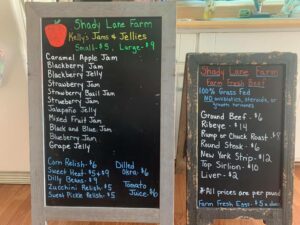 Shady Lane Farm
Kelly's Jams & Jellies
Small-$5, Large-$9
Caramel Apple Jam
Blackberry Jam
Blackberry Jelly
Strawberry Jam
Strawberry Basil Jam
Strawberry Jam
Jalapeño Jelly
Mixed Fruit Jam
Black and Blue Jam
Blueberry Jam
Grape Jelly
Corn Relish-$6
Sweet Heat-$5+$9
Dilly Beans-$9
Zucchini Relish-$5
Sweet Pickle Relish-$5
Dilled
Okra-$6
Tomato
Juice-$6
Shady Lane Farm
Farm Fresh Beef
100% Grass Fed
NO antibiotics, steroids, or
growth hormones
Ground Beef-$6
Ribeye-$14
Rump or Chuck Roast-
Round Steak-$6
New York Strip-$12
Top Sirloin-$10
Liver-$2
*All prices are per pound
Farm Fresh Eggs-$5 a